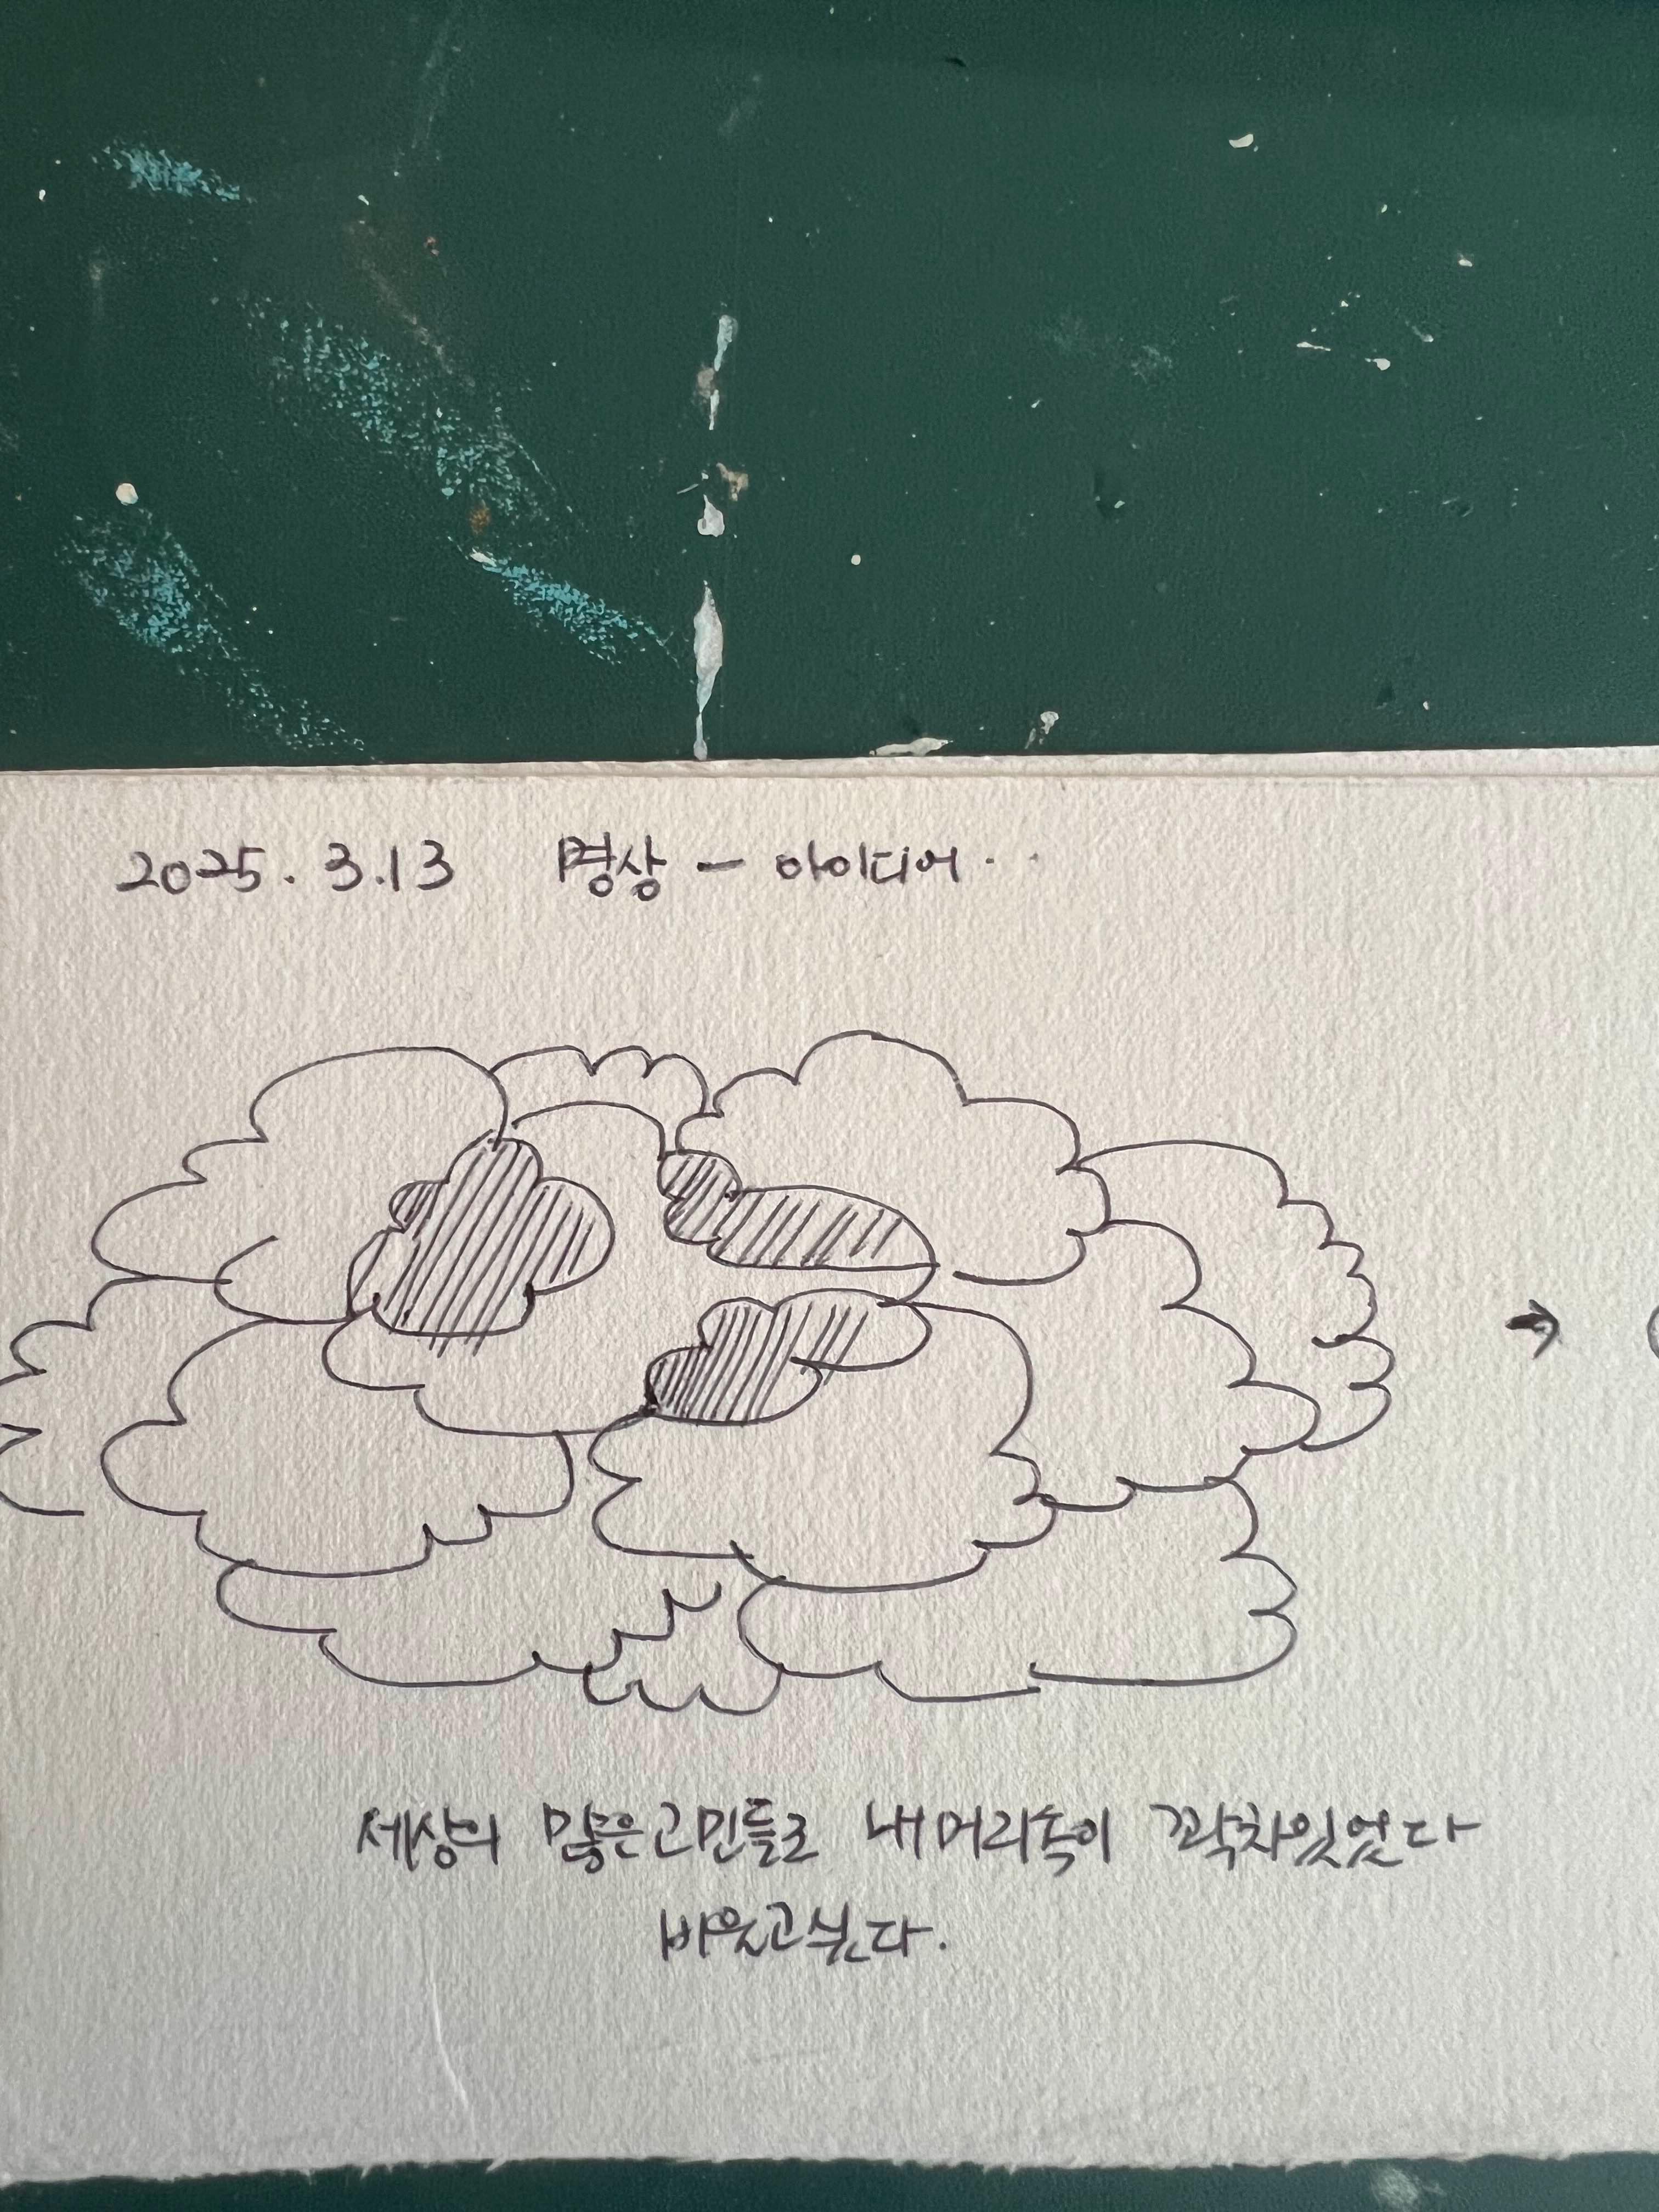 2025.3.13 명상 - 아이디어..
세상의 많은고민들로 내머리속이 꽉차있었다
비우고싶다.